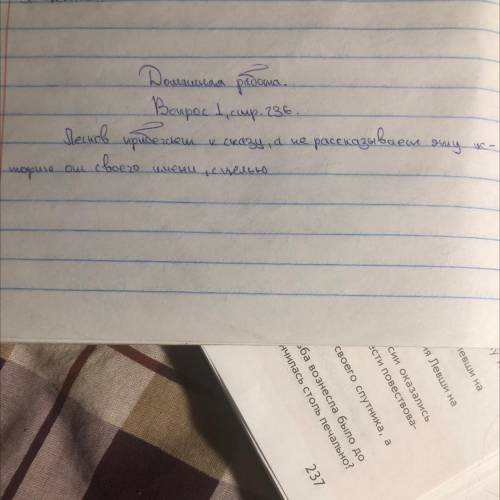 Домашняя работа.
Вопрос 1, стр. 236.
Лесков прибегает к сказу, а не рассказывает эту ис-
торию от своего имени, с целью
невши на
ия Левши на
сии оказались
ести повествова-
своего спутника, а
ба вознесла было до
нчилась столь печально?
237